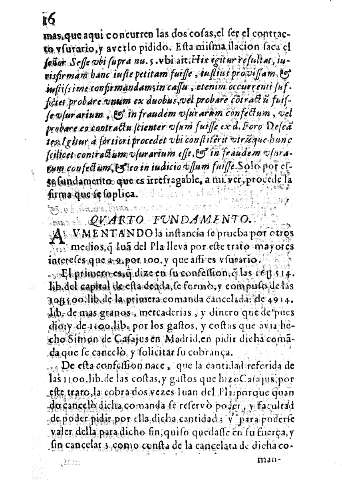 16
mas, que aqui concurren las dos cosas, el ser el contrac-
to vsurario, y averlo pidido. Esta misma ilacion saca el
señor Sesse vbi supra nu. 5. vbi ait. His igitur resultat, iu-
risfirmam hanc iuste petitam fuisse, iustius provissam, &
iustissime confirmandam in cassu, etenim occurrenti suf-
ficiet probare vnum ex duobus, vel probare contractũ fuis-
se vsurarium, & in fraudem vsurarum confectum, vel
probare eo contractu scienter vsum fuisse ex d. Foro
Igitur à fortiori procedet vbi constiterit vtrũque hunc
scilicet contractum vsurarium esse, & in fraudem vsura-
rum confectum, & eo in iudicio vsum fuisse. Solo por es-
se fundamento que es irrefragable, a mi ver, procede la
firma que se suplica.
QVARTO FVNDAMENTO.
AVMENTANDO la instancia se prueba por otros
medios, q̃ luã del Pla lleva por este trato mayores
intereses que a por 100. y que assi es vsurario.
El primero es, q̃ dize en su confession, q̃ las 514.
lib. del capital de esta deuda, se formò, y compuso de las
lib. de la primera comanda cancelada: de 4914.
lib. de mas granos, mercaderias, y dinero que despues
dio; y de 1100. lib. por los gastos, y costas que avia he-
cho Simon de Casajus en Madrid, en pidir dicha comã-
da que se cancelò, y solicitar su cobrança.
De esta confession nace, que la cantidad referida de
las 1100. lib. de las costas, y gastos que hizo Casajus por
este trato, la cobra dos vezes Iuan del Pla: porque quan
do cancelò dicha comanda se reservò poder, y facultad
de poder pidir por ella dicha cantidad; y para poderse
valer della para dicho fin, quiso quedasse en su fuerça, y
sin cancelar; como consta de la cancelata de dicha co
man-